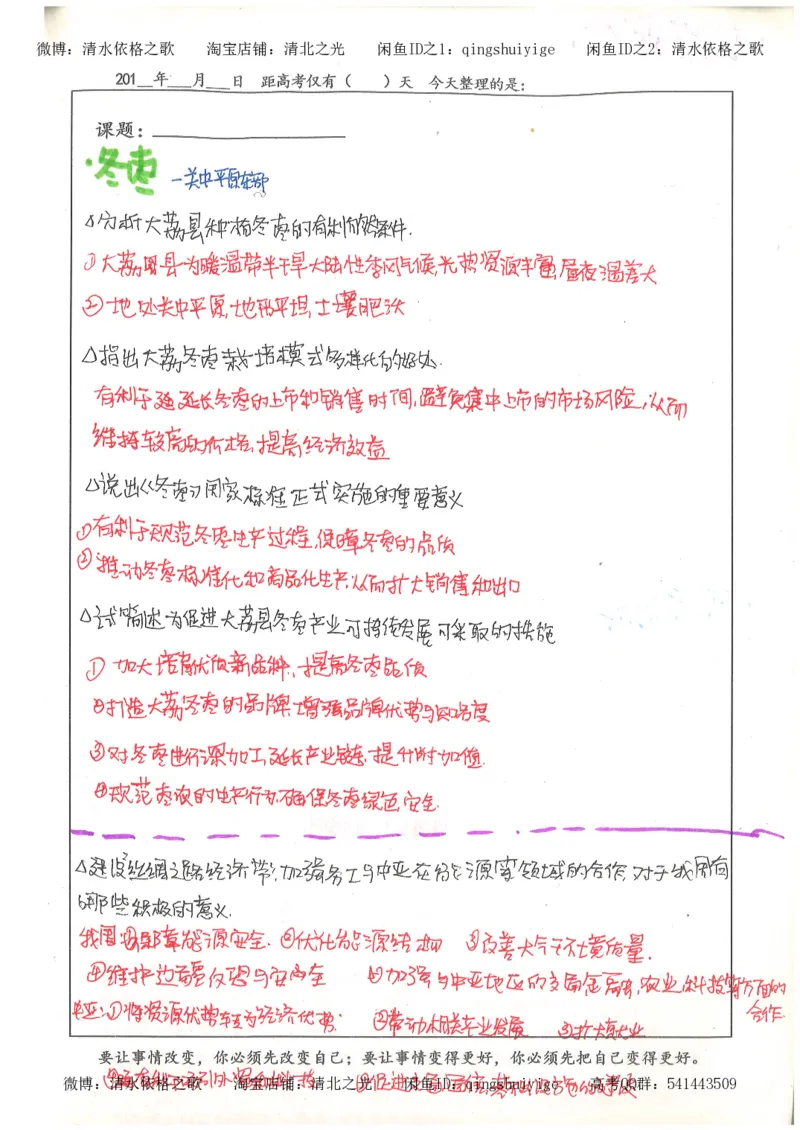 微博：清水依格之歌 淘宝店铺：清北之光 闲鱼ID之1：qingshuiyige 闲鱼ID之2：清水依格之歌
201__年___月___日 距高考仅有（ ）天 今天整理的是：
课题：
·冬枣 —关中平原东部
△分析大荔县种植冬枣的有利自然条件.
①大荔县为暖温带半干旱大陆性季风气候,光热资源丰富,昼夜温差大
②地处关中平原,地形平坦,土壤肥沃
△指出大荔冬枣栽培模式多样化的好处.
有利于延长冬枣的上市和销售时间,避免集中上市的市场风险,从而
维持较高的价格,提高经济效益
△说出《冬枣》国家标准正式实施的重要意义
①有利于规范冬枣生产过程,保障冬枣的品质
②推动冬枣标准化和商品化生产,从而扩大销售和出口
△试简述为促进大荔县冬枣产业可持续发展可采取的措施
①加大培育优质新品种,提高冬枣品质
②打造大荔冬枣的品牌,增强品牌优势与知名度
③对冬枣进行深加工,延长产业链,提升附加值.
④规范枣农的生产行为,确保冬枣绿色安全.
△建设丝绸之路经济带,加强务工与中亚在能源等领域的合作,对于我国有
哪些积极的意义.
我国:①保障能源安全. ②优化能源结构 ③改善大气环境质量.
④维护边疆稳定与安全 ⑤加强与中亚地区的交通,金融,农业,科技等方面的
合作.
中亚:①将资源优势转变为经济优势. ②带动相关产业发展 ③扩大就业
要让事情改变，你必须先改变自己；要让事情变得更好，你必须先把自己变得更好。
微博：清水依格之歌 淘宝店铺：清北之光 闲鱼ID：qingshuiyige 高考QQ群：541443509